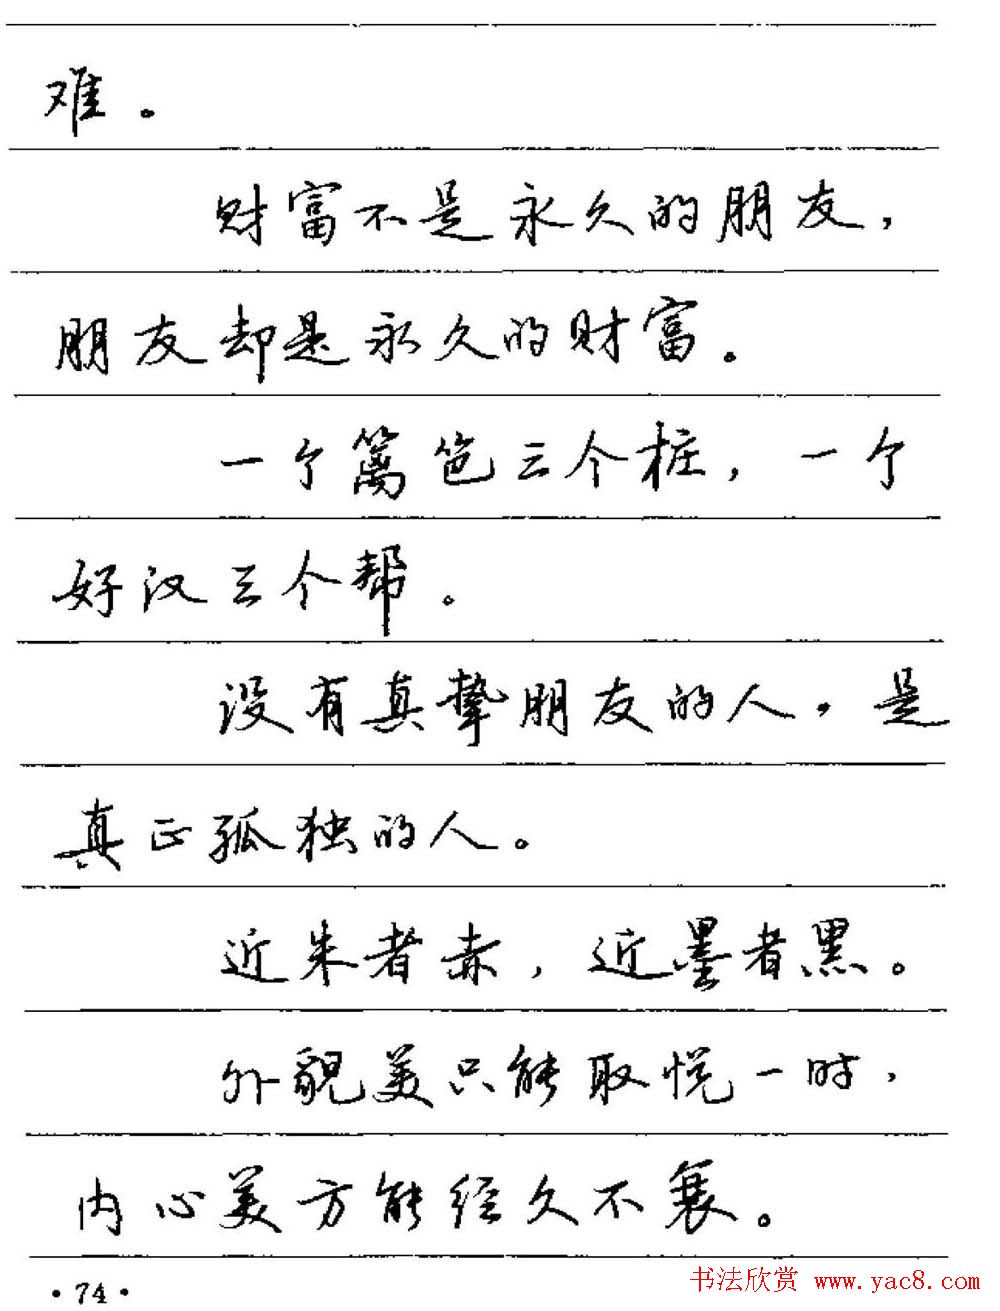 难。
财富不是永久的朋友，
朋友却是永久的财富。
一个篱笆三个桩，一个
好汉三个帮。
没有真挚朋友的人，是
真正孤独的人。
近朱者赤，近墨者黑。
外貌美只能取悦一时，
内心美方能经久不衰。
·74·
书法欣赏 www.yac8.com